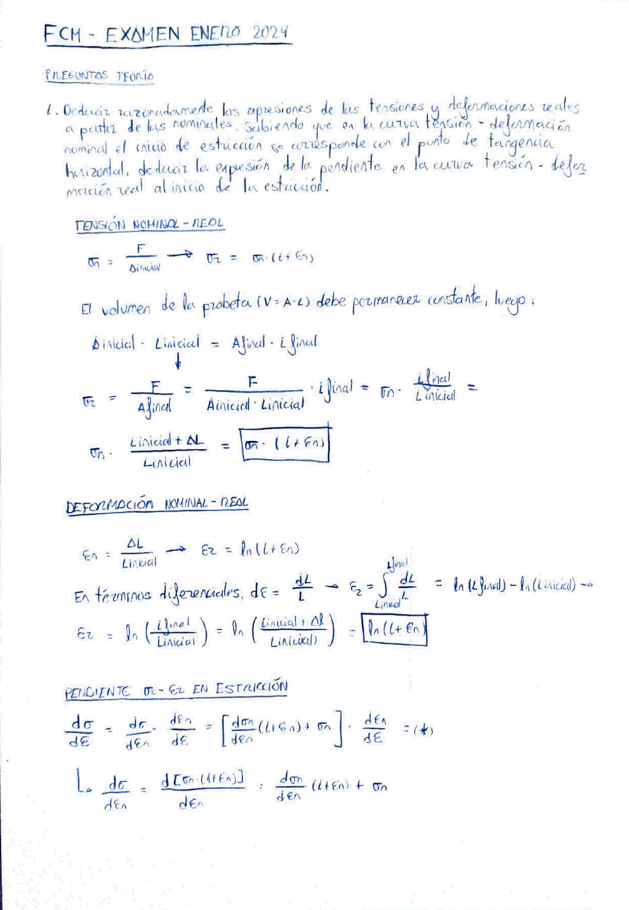 FCM - EXAMEN ENERO 2024
PREGUNTAS TEORÍA
1. Deducir razonadamente las expresiones de las tensiones y deformaciones reales
a partir de las nominales. Sabiendo que en la curva tensión - deformación
nominal el inicio de estricción se corresponde con el punto de tangencia
horizontal, deducir la expresión de la pendiente en la curva tensión - defor
mación real al inicio de la estricción.
TENSIÓN NOMINAL - REAL
σn = F / Ainicial → σr = σn·(1+εn)
El volumen de la probeta (V = A·L) debe permanecer constante, luego:
Ainicial · Linicial = Afinal · Lfinal
↓
σr = F / Afinal = F / (Ainicial · Linicial) · Lfinal = σn · Lfinal / Linicial =
σn · (Linicial + ΔL) / Linicial = σn · (1+εn)
DEFORMACIÓN NOMINAL - REAL
εn = ΔL / Linicial → εr = ln(1+εn)
En términos diferenciales, dε = dL / L → εr = ∫ Linicial Lfinal dL / L = ln(Lfinal) - ln(Linicial) →
εr = ln(Lfinal / Linicial) = ln((Linicial + Δl) / Linicial) = ln(1+εn)
PENDIENTE σr - εr EN ESTRICCIÓN
dσ/dε = dσ/dεn · dεn/dε = [dσn/dεn (1+εn) + σn] · dεn/dε = (*)
↳ dσ/dεn = d[σn·(1+εn)] / dεn = dσn/dεn (1+εn) + σn